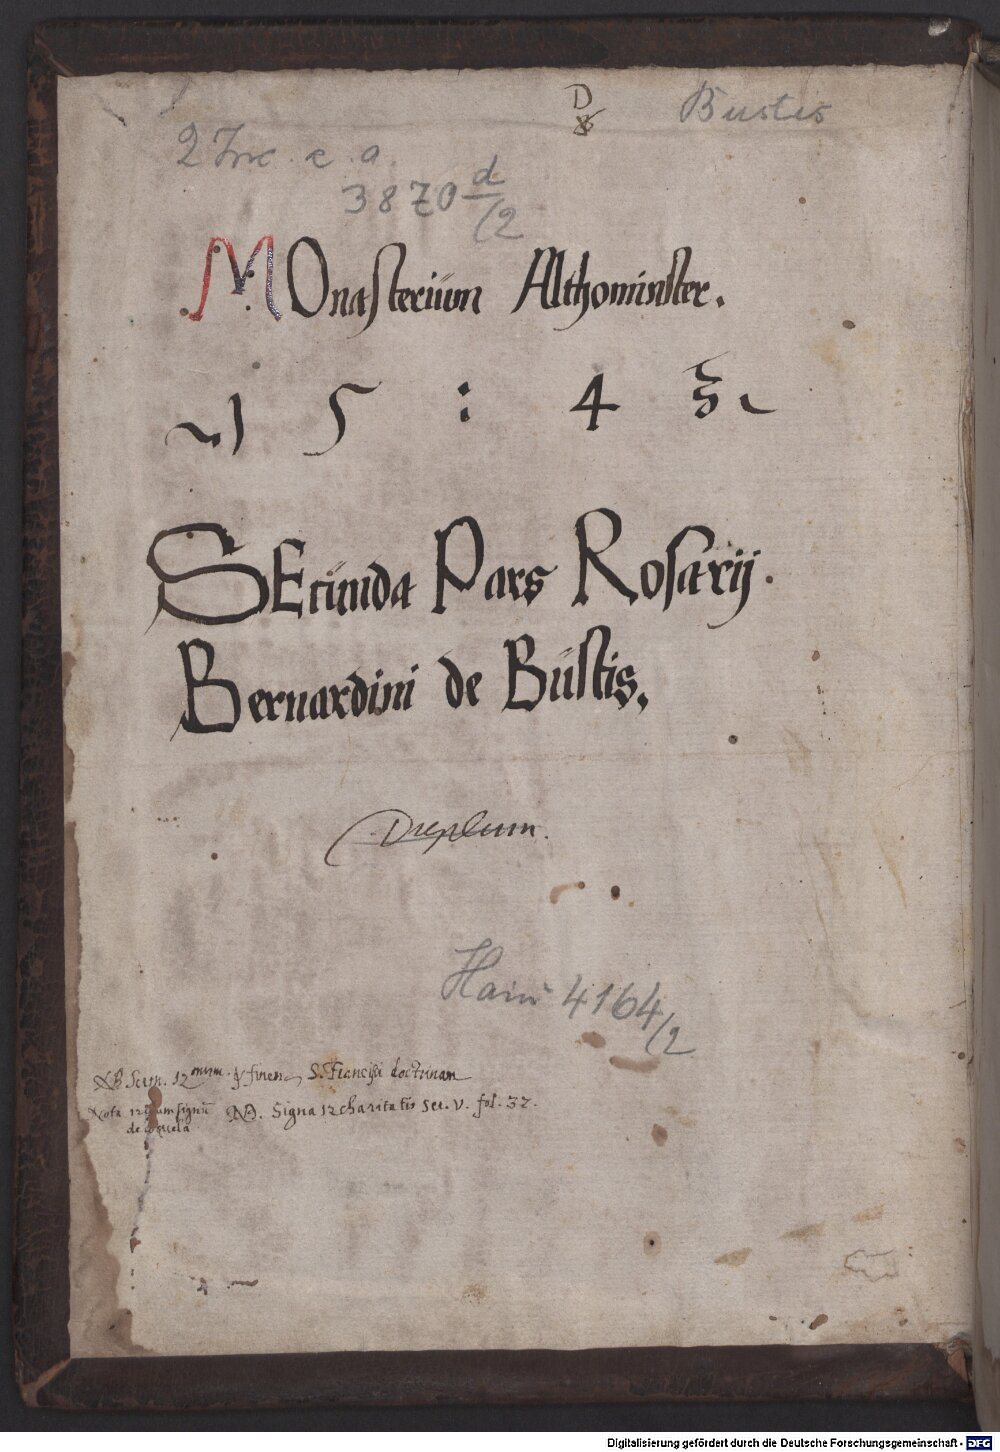 D
Bustis
2 Inc. c. a.
3870 d/2
MOnasterium Althominster.
15 : 43
SEcunda Pars Rosarij.
Bernardini de Bustis.
Duplum.
Hain 4164/2
NB Serm. 12 finem S. Francisci doctrinam
Nota 12 signum NB. Signa 12 charitatis Ser. V. fol. 32.
de loquela
Digitalisierung gefördert durch die Deutsche Forschungsgemeinschaft - DFG